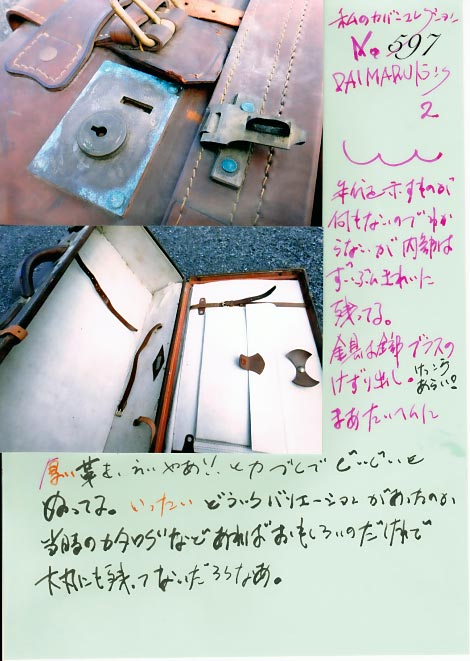 私のカバンコレクション
No. 597
DAIMARU
2
年代を示すものが
何もないのでわか
らないが内部は
ずいぶんきれいに
残ってる。
金具は全部ブラスの
けずり出し。けっこう
あらい!!
まあたいへんに
厚い革を、えいやあ!!と力づくでぐいぐいと
ぬってる。いったいどういうバリエーションがあったのか
当時のカタログなどあればおもしろいのだけれど
大丸にも残ってないだろうなあ。